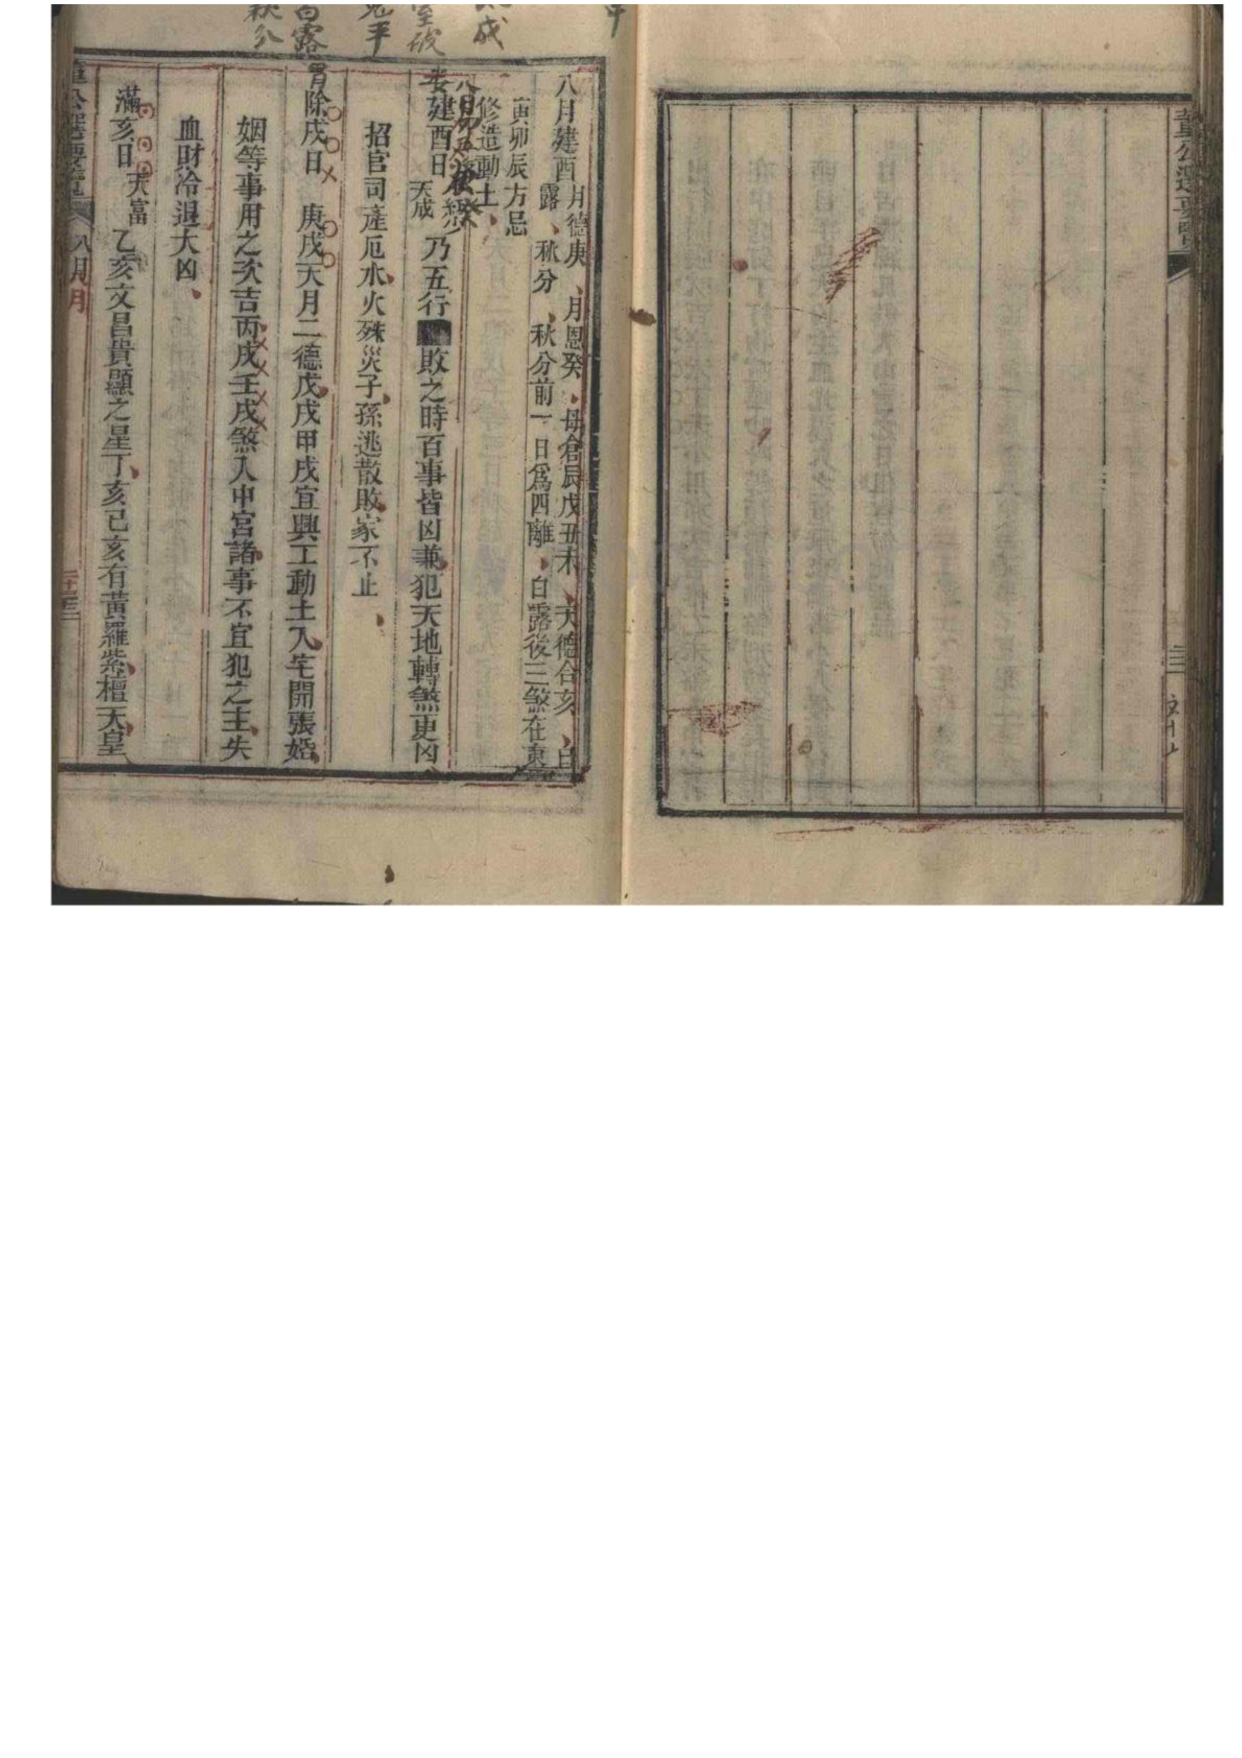 董公選要覽
八月建酉 月德庚、月恩癸、母倉辰戌丑未、天德合亥、白
露、秋分、秋分前一日爲四離、白露後三煞在東
寅卯辰方忌
修造動土、
建酉日 天成 乃五行 敗之時百事皆凶兼犯天地轉煞更凶、
招官司產厄水火殊災子孫逃散敗家不止、
除戌日 庚戌天月二德戊戌甲戌宜興工動土入宅開張婚
姻等事用之次吉丙戌壬戌煞入中宮諸事不宜犯之主失
血財冷退大凶、
滿亥日 天富 乙亥文昌貴顯之星丁亥己亥有黃羅紫檀天皇
八月